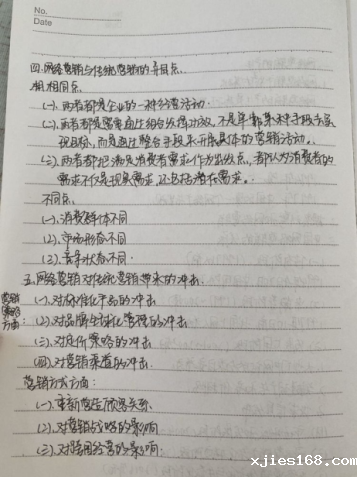 No.
Date
四.网络营销与传统营销的异同点.
相同点.
(一).两者都是企业的一种经营活动.
(二).两者都需要通过组合发挥功效,不是单靠某种手段去实
现目标,而是通过整合手段来开展具体的营销活动.
(三).两者都把满足消费者需求作为出发点,都认为消费者的
需求不仅是现实需求,还包括潜在需求。
不同点.
(一).消费群体不同
(二).市场形态不同
(三).竞争状态不同.
五.网络营销对传统营销带来的冲击.
(一).对标准化产品的冲击
营销
策略
方面:
(二).对品牌全球化管理的冲击
(三).对定价策略的冲击
(四).对营销渠道的冲击.
营销方式方面:
(一).重新营造顾客关系.
(二).对营销战略的影响
(三).对跨国经营的影响
xjies168.com